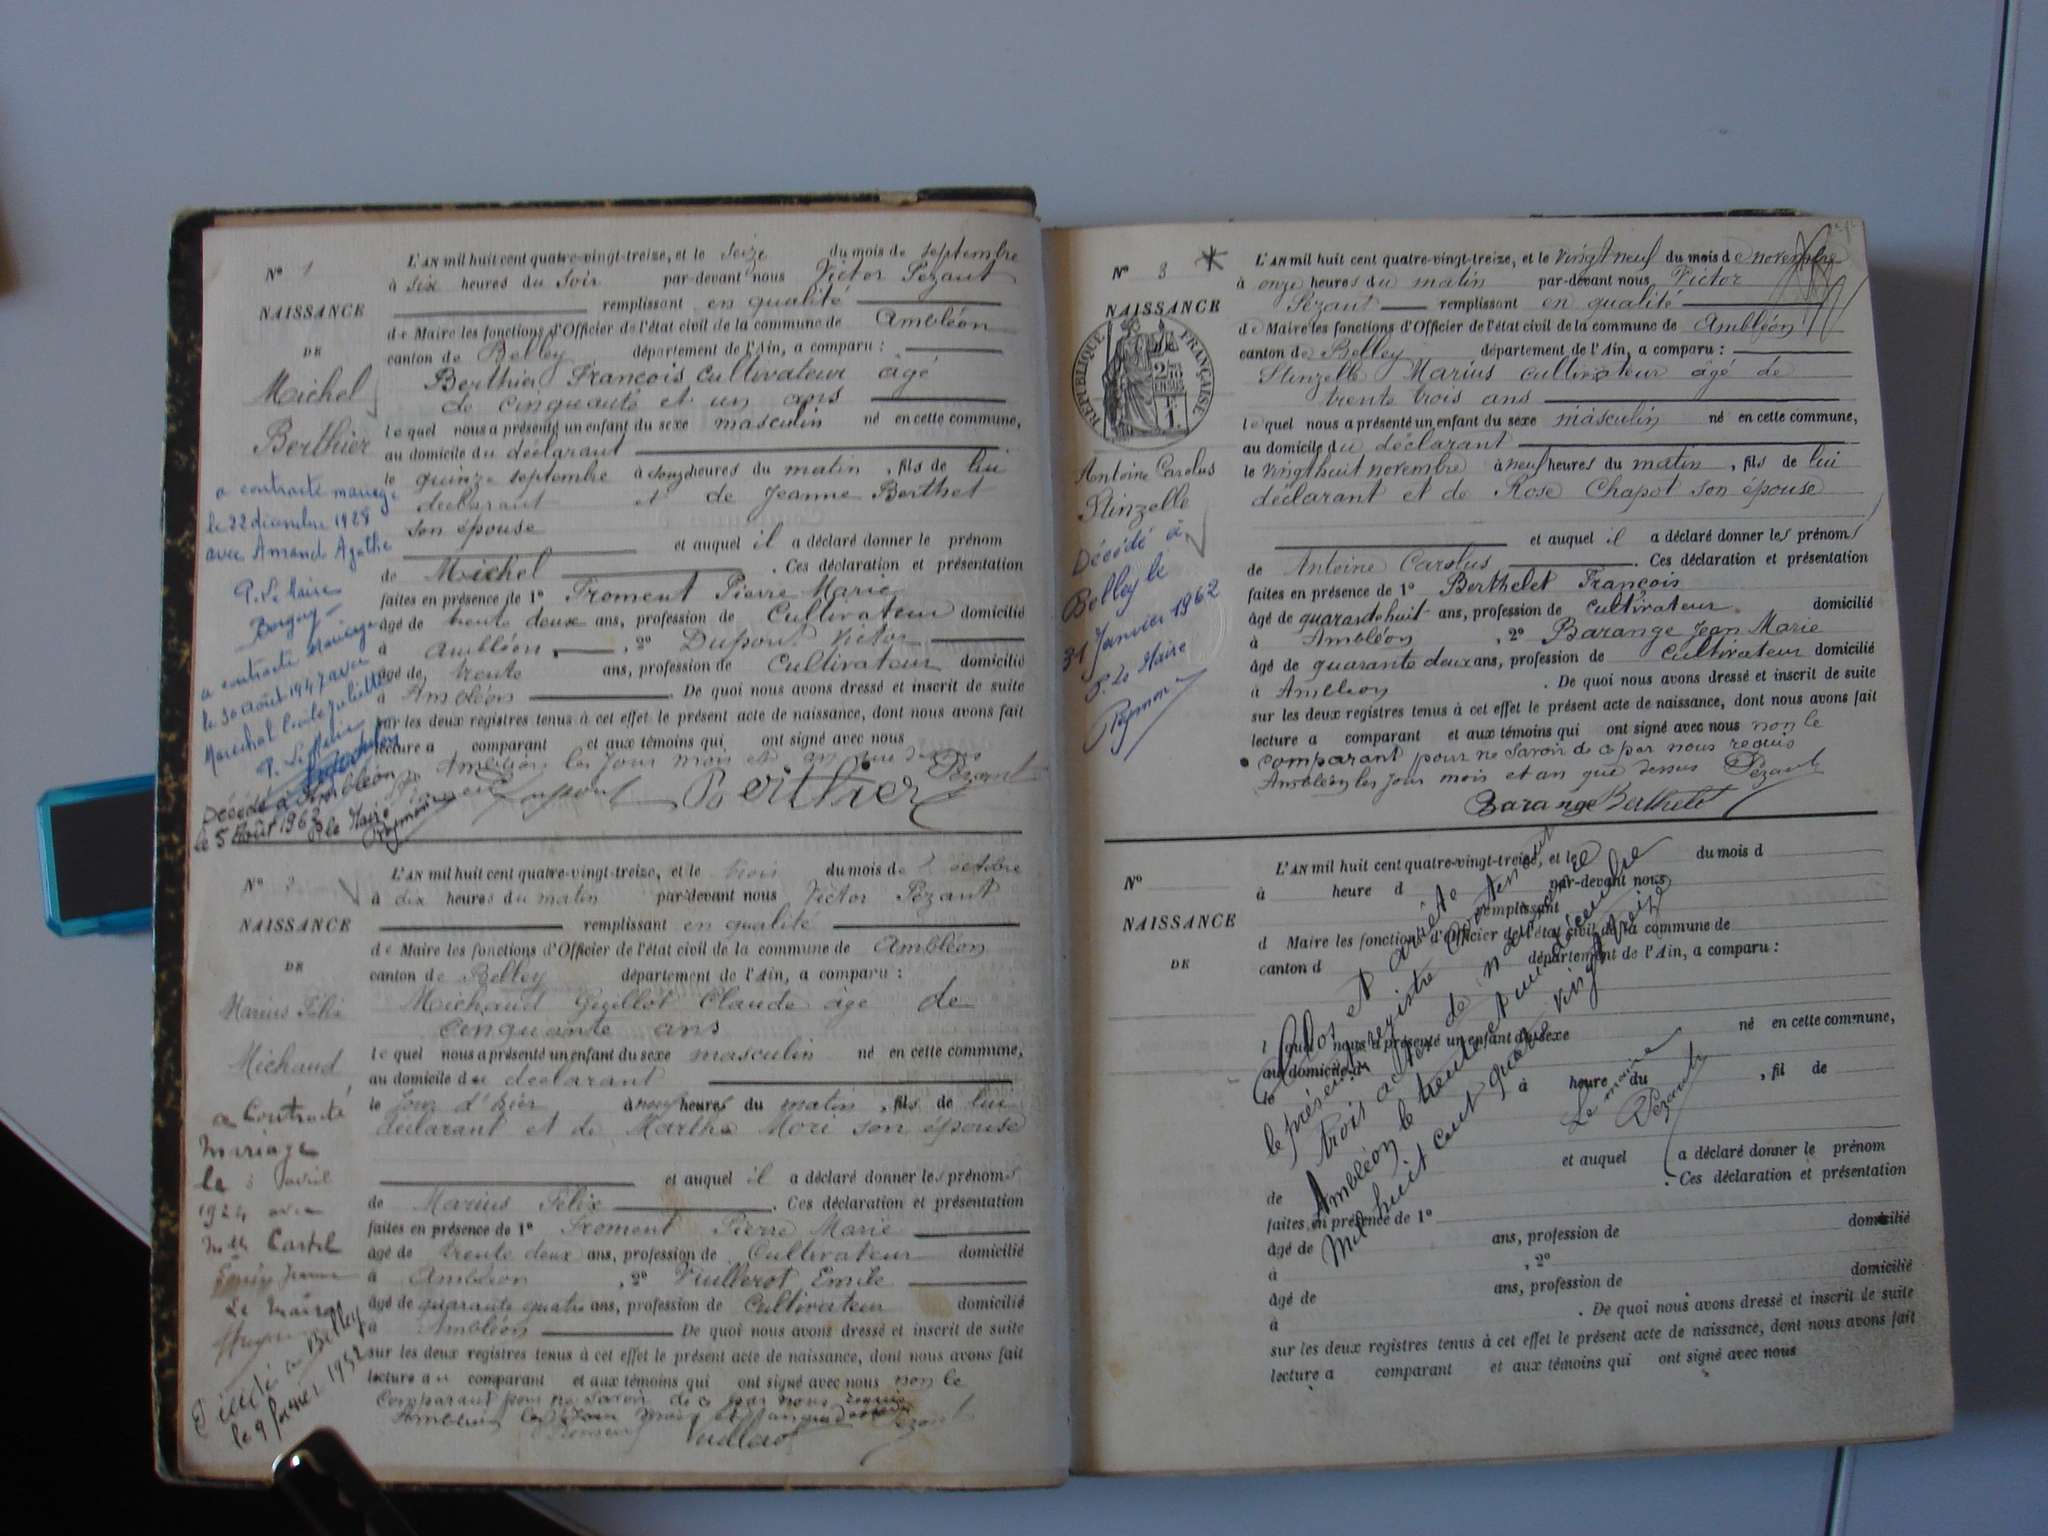 N° 1
NAISSANCE
DE
Michel
Berthier
a contracté mariage
le 22 décembre 1928
avec Amand Agathe
P. Le Maire
a contracté mariage
le 30 août 1947 avec
Maréchal Juliette
P. Le Maire
Décédé à Ambléon
le 5 Août 1962
P. le Maire
L'AN mil huit cent quatre-vingt-treize, et le seize du mois de septembre
à six heures du soir par-devant nous Victor Pézant
remplissant en qualité
de Maire les fonctions d'Officier de l'état civil de la commune de Ambléon
canton de Belley département de l'Ain, a comparu :
Berthier François cultivateur âgé
de cinquante et un ans
lequel nous a présenté un enfant du sexe masculin né en cette commune,
au domicile du déclarant
le quinze septembre à heures du matin, fils de lui
déclarant et de Jeanne Berthet
son épouse
et auquel il a déclaré donner le prénom
de Michel . Ces déclaration et présentation
faites en présence de 1° Froment Pierre Marie
âgé de trente deux ans, profession de Cultivateur domicilié
à Ambléon, 2° Dupont Victor
âgé de trente ans, profession de Cultivateur domicilié
à Ambléon . De quoi nous avons dressé et inscrit de suite
sur les deux registres tenus à cet effet le présent acte de naissance, dont nous avons fait
lecture a comparant et aux témoins qui ont signé avec nous
Ambléon les jour mois et an que dessus Pézant
Dupont Berthier
N° 2
NAISSANCE
DE
Marius Félix
Michaud
a Contracté
Mariage
le avril
1924 avec
Melle Castel
Le Maire
Décédé à Belley
le 9 1952
L'AN mil huit cent quatre-vingt-treize, et le trois du mois de octobre
à dix heures du matin par-devant nous Victor Pézant
remplissant en qualité
de Maire les fonctions d'Officier de l'état civil de la commune de Ambléon
canton de Belley département de l'Ain, a comparu :
Michaud Guillot Claude âgé de
cinquante ans
lequel nous a présenté un enfant du sexe masculin né en cette commune,
au domicile du déclarant
le jour d'hier à neuf heures du matin, fils de lui
déclarant et de Marthe Mori son épouse
et auquel il a déclaré donner les prénoms
de Marius Félix . Ces déclaration et présentation
faites en présence de 1° Froment Pierre Marie
âgé de trente deux ans, profession de Cultivateur domicilié
à Ambléon, 2° Vuillerot Emile
âgé de quarante quatre ans, profession de Cultivateur domicilié
à Ambléon De quoi nous avons dressé et inscrit de suite
sur les deux registres tenus à cet effet le présent acte de naissance, dont nous avons fait
lecture au comparant et aux témoins qui ont signé avec nous non le
Comparant pour ne savoir de ce par nous requis
Ambléon les jour mois et an que dessus Pézant
Froment Vuillerot
N° 3
NAISSANCE
RÉPUBLIQUE FRANÇAISE
Antoine Carolus
Stinzelle
Décédé à
Belley le
31 Janvier 1962
P. le Maire
L'AN mil huit cent quatre-vingt-treize, et le vingt neuf du mois de novembre
à onze heures du matin par-devant nous Victor
Pézant remplissant en qualité
de Maire les fonctions d'Officier de l'état civil de la commune de Ambléon
canton de Belley département de l'Ain, a comparu :
Stinzelle Marius cultivateur âgé de
trente trois ans
lequel nous a présenté un enfant du sexe masculin né en cette commune,
au domicile du déclarant
le vingt huit novembre à neuf heures du matin, fils de lui
déclarant et de Rose Chapot son épouse
et auquel il a déclaré donner les prénoms
de Antoine Carolus . Ces déclaration et présentation
faites en présence de 1° Berthelet François
âgé de quarante huit ans, profession de cultivateur domicilié
à Ambléon, 2° Barange Jean Marie
âgé de quarante deux ans, profession de cultivateur domicilié
à Ambléon . De quoi nous avons dressé et inscrit de suite
sur les deux registres tenus à cet effet le présent acte de naissance, dont nous avons fait
lecture a comparant et aux témoins qui ont signé avec nous non le
comparant pour ne savoir de ce par nous requis
Ambléon les jour mois et an que dessus Pézant
Barange Berthelet
N°
NAISSANCE
DE
L'AN mil huit cent quatre-vingt-treize, et le du mois d
à heure d par-devant nous
remplissant
d Maire les fonctions d'Officier de l'état civil de la commune de
canton d département de l'Ain, a comparu :
l quel nous a présenté un enfant du sexe né en cette commune,
au domicile d
le à heure du , fil de
et auquel a déclaré donner le prénom
de . Ces déclaration et présentation
faites en présence de 1°
âgé de ans, profession de domicilié
à , 2°
âgé de ans, profession de domicilié
à . De quoi nous avons dressé et inscrit de suite
sur les deux registres tenus à cet effet le présent acte de naissance, dont nous avons fait
lecture a comparant et aux témoins qui ont signé avec nous
Clos et arrêté
le présent registre contenant
trois actes de naissance
Ambléon le trente et un décembre
Mil huit cent quatre vingt treize
Le maire
Pézant